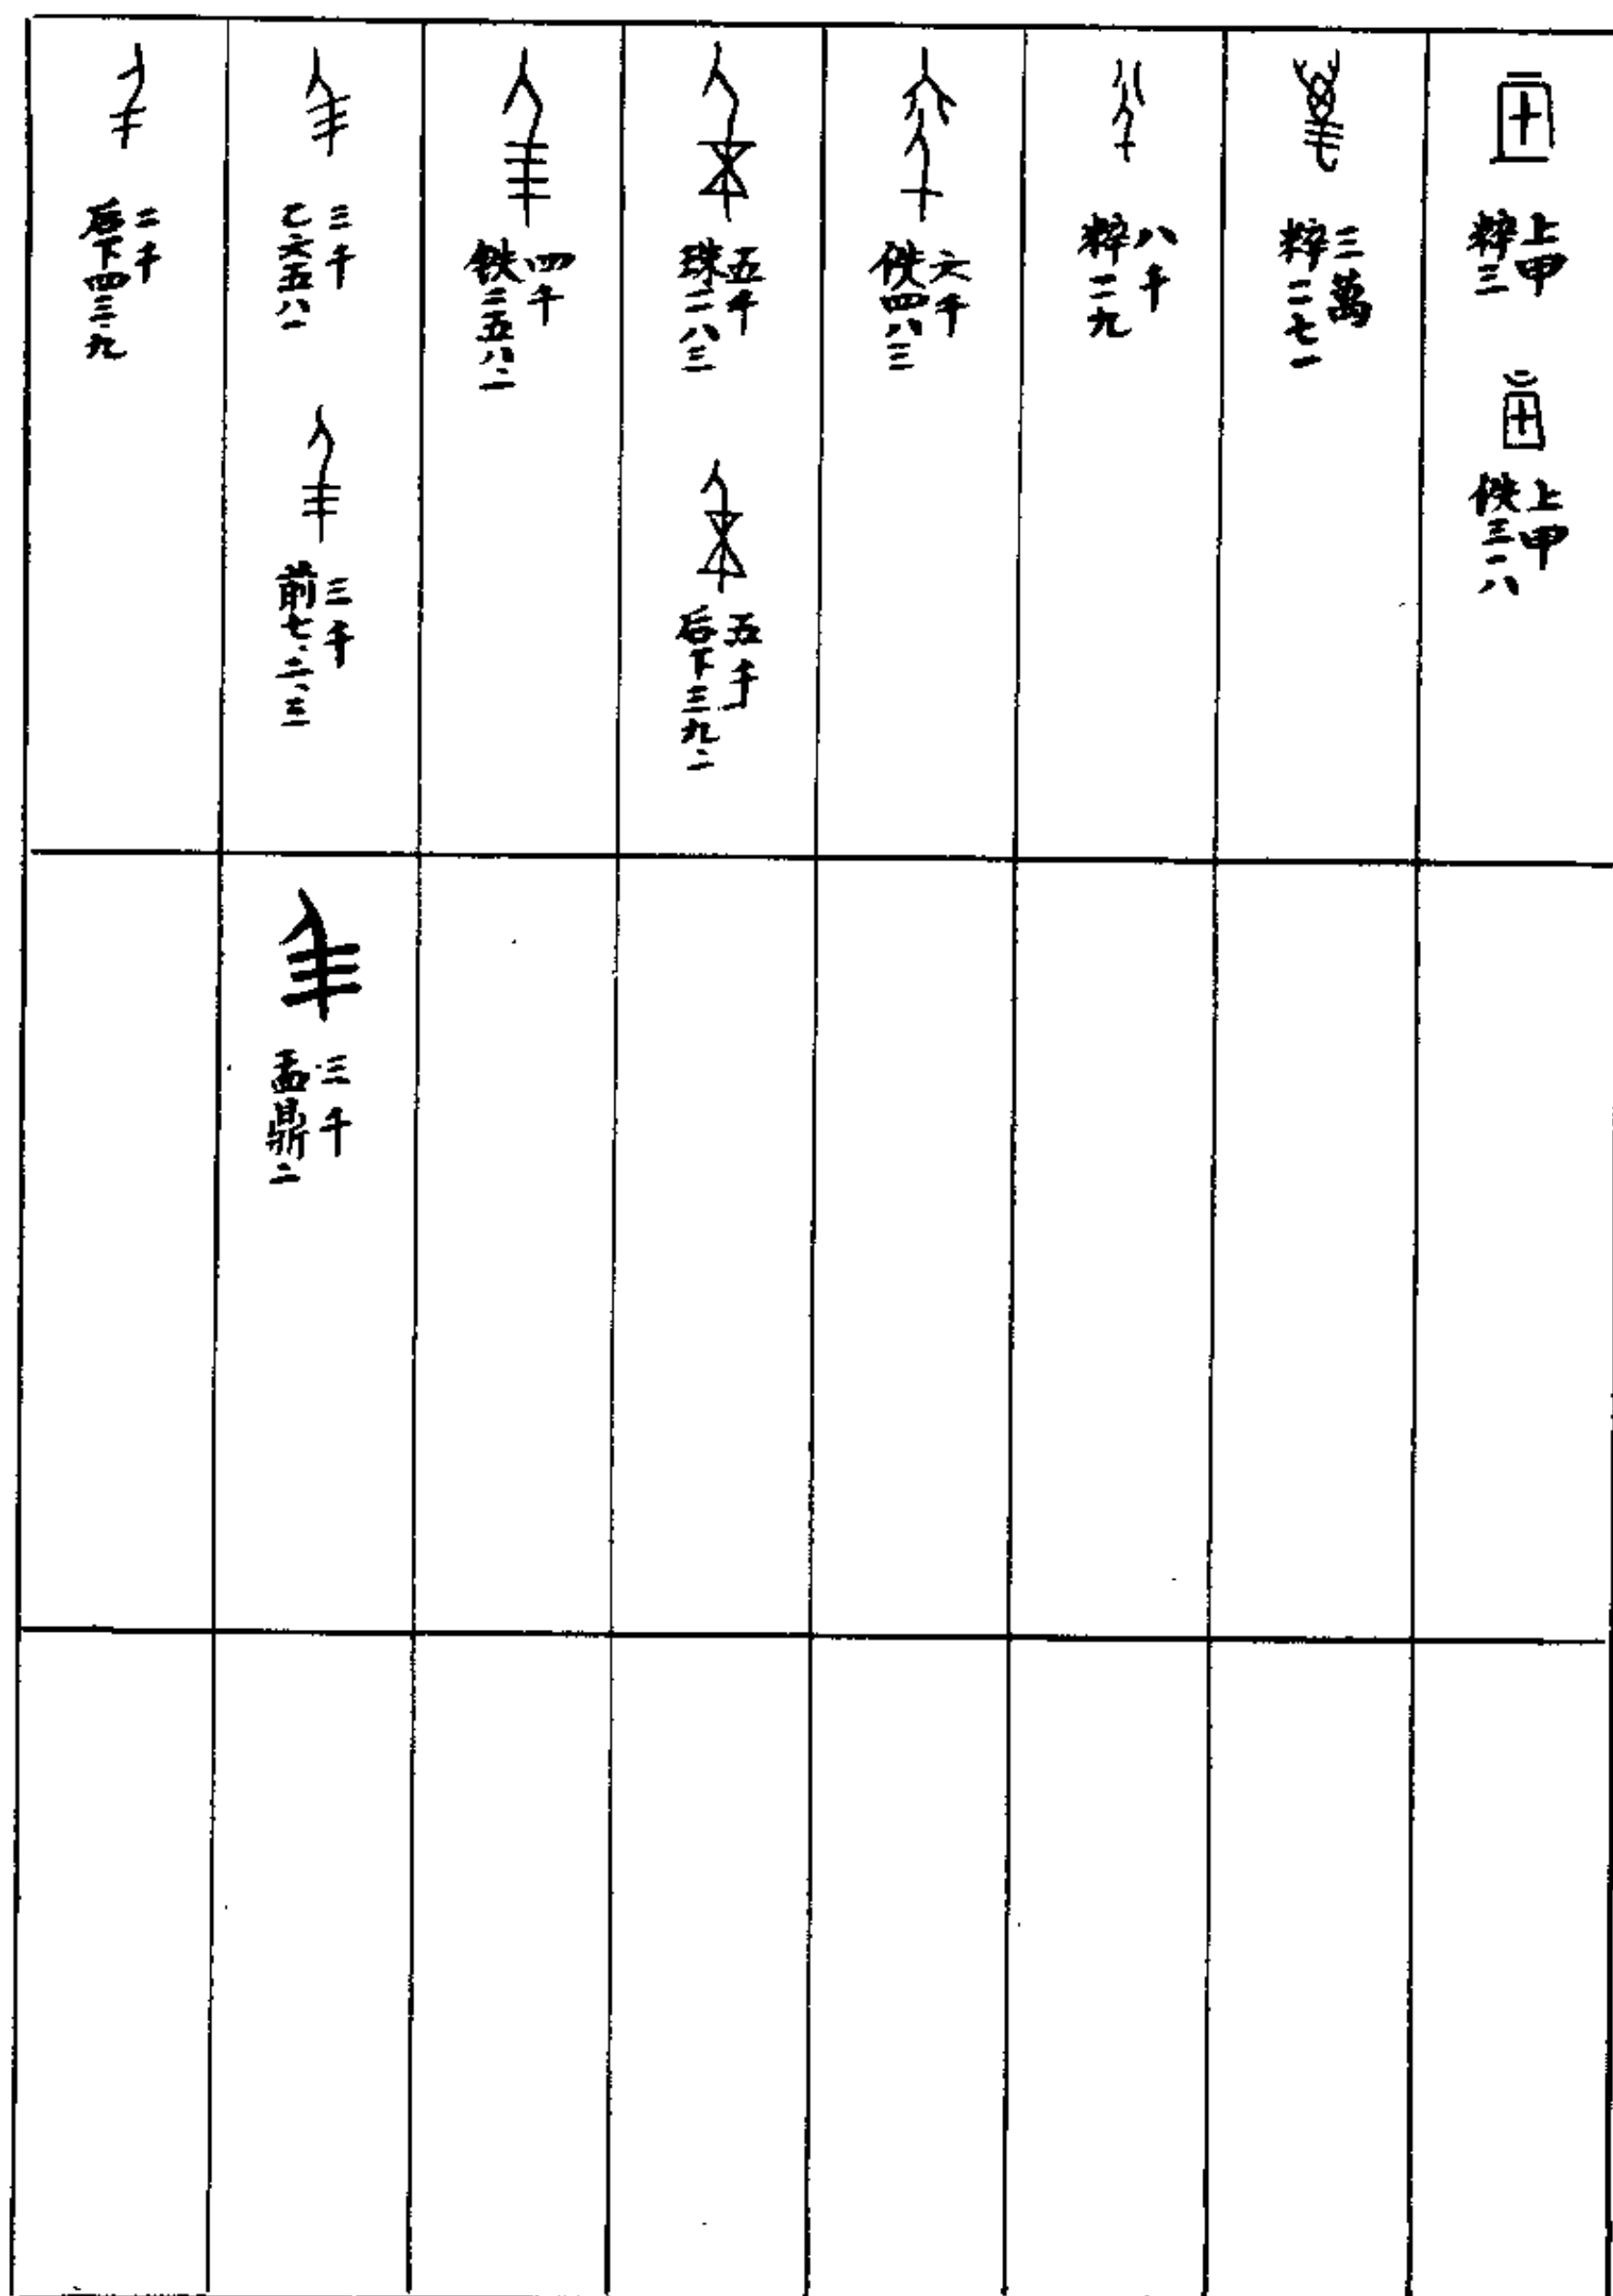 上甲
粹三
上甲
佚三二八
三萬
粹二七一
八千
粹二九
六千
佚四八三
五千
珠二八三
五千
后下三九·二
四千
铁二五八·二
三千
乙六五八一
三千
前七·二·三
三千
盂鼎二
二千
后下四三·九